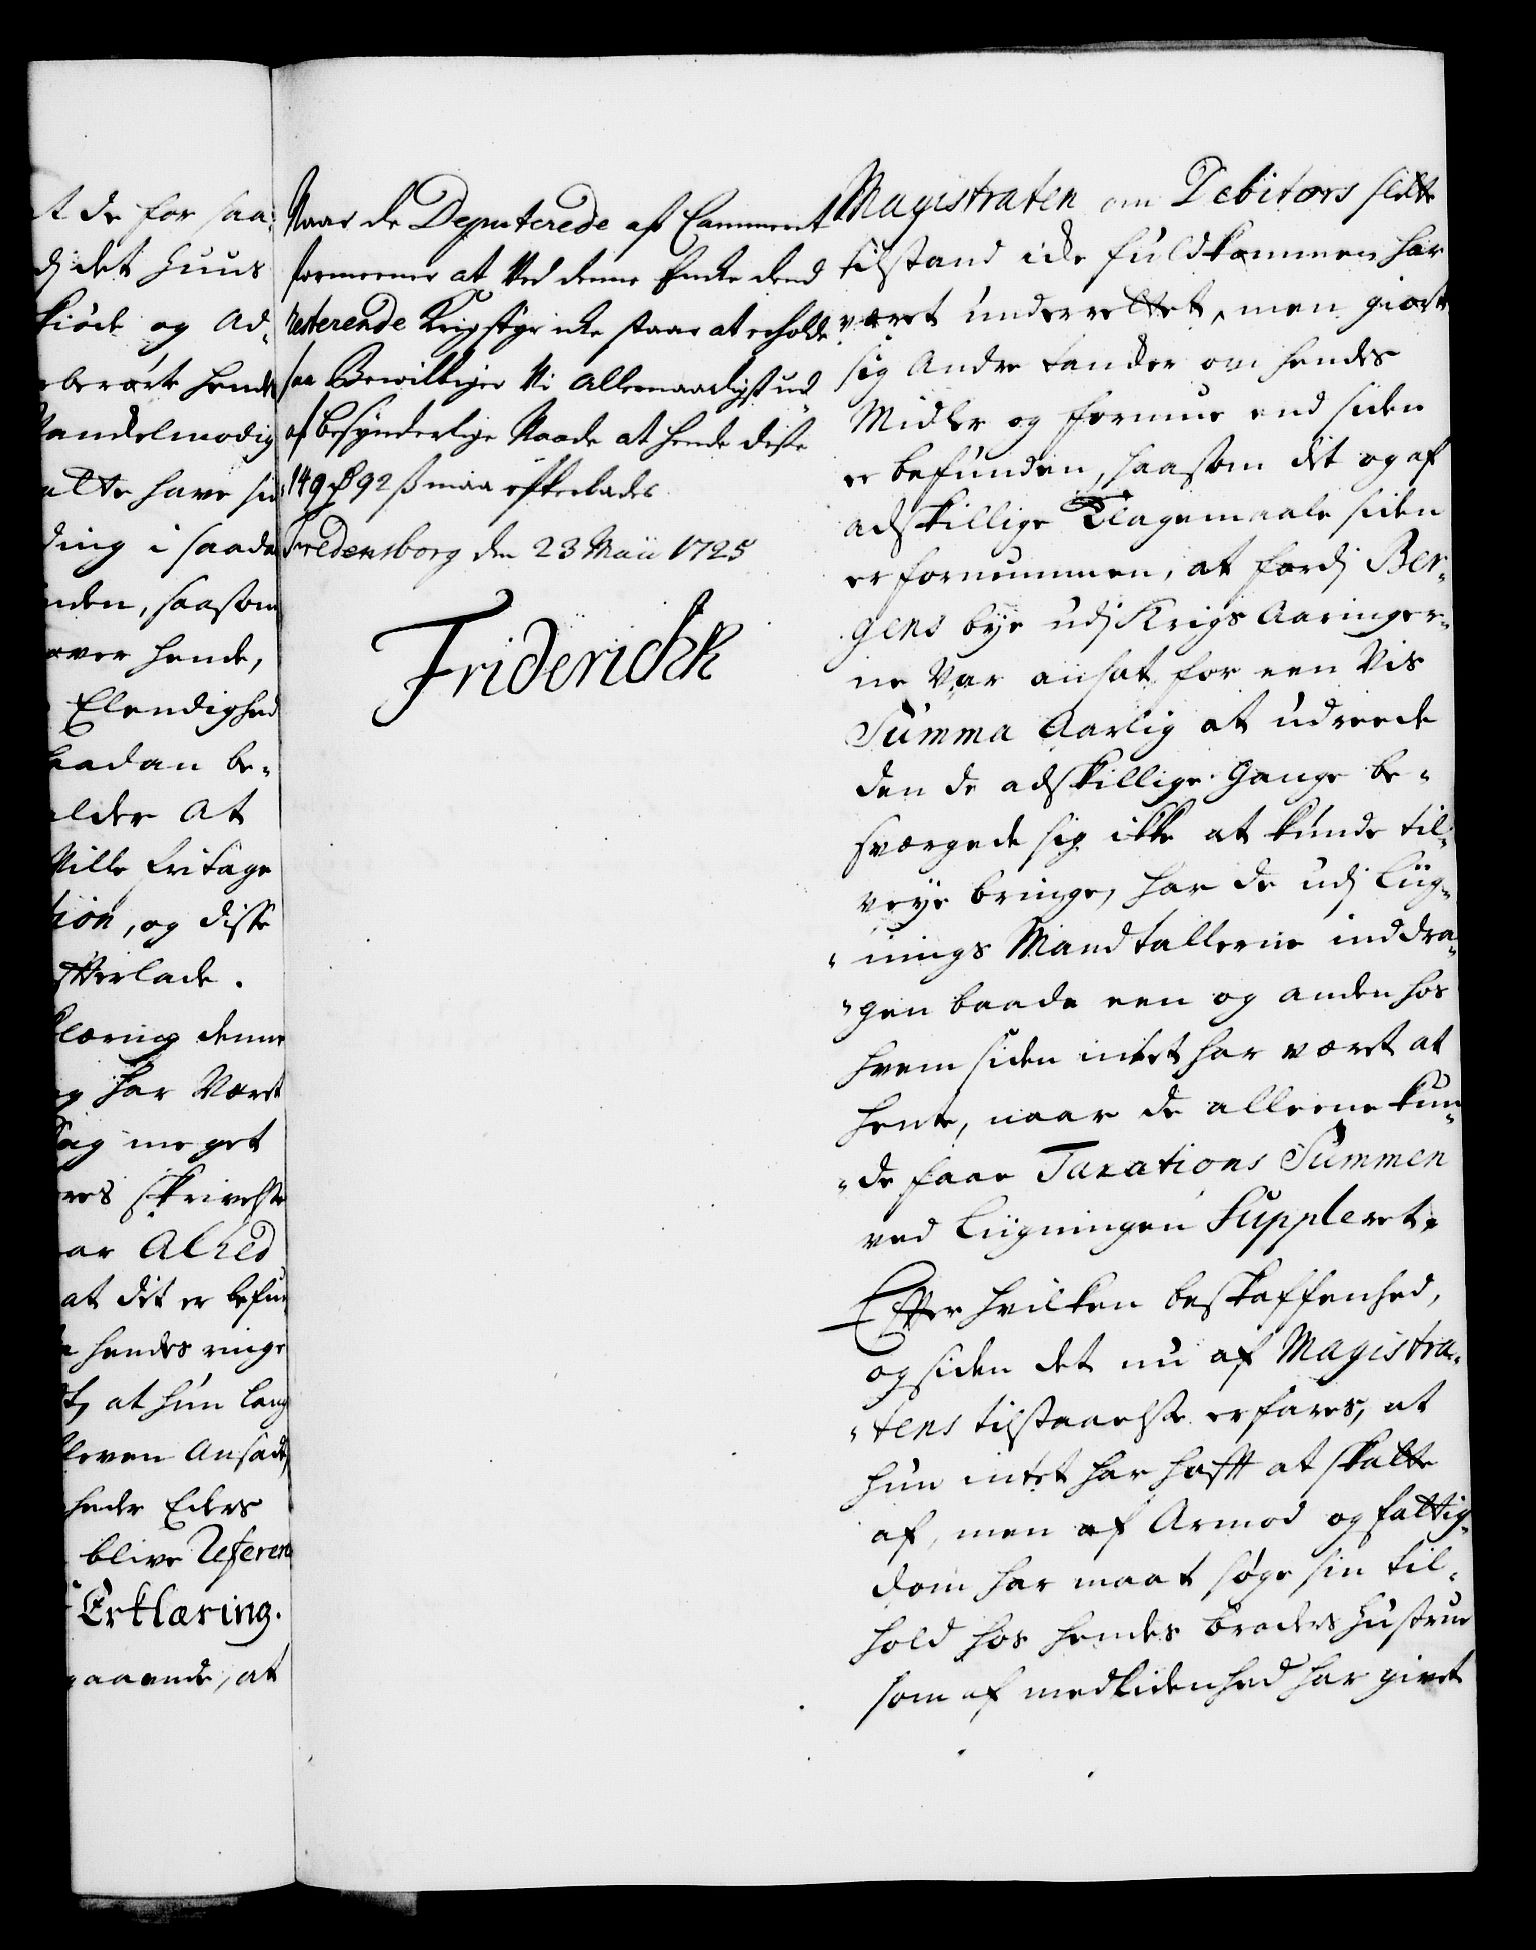 t de for saa-
dj det Huus
kiöde og Ad-
berørte hendes
Vandelmodig
atte have sin
ding i saada
nden, saasom
over hende,
Elendighed
saadan be-
alder At
Ville fritage
tion, og disse
efterlade.
klæring denne
og har Været
Sag meget
res skrivelse
ar Alled
at dit er befun
hendes ringe
t, at hun lang
bleven Ansadt,
heder Eders
blive Referen
Erklæring.
gaaende, at
Naar de Deputerede af Cammeret
formeener at Ved denne Encke dend
resterende Krigstyr icke staar at erholde
saa Bewilliger Vi Allernaadigst ud
af besynderlige Naade at hende disse
149 rdr 92 ß maa efterlades
Fredensborg den 23 Maii 1725
Friderich R
Magistraten om Debitors slette
tilstand icke fuldkommen har
været underrettet, men giort
sig Andre tancker om hendes
Midler og formue end siden
er befunden, saasom dit og af
adskillige Klagemaale siden
er fornummen, at fordj Ber-
gens bye udj Krigs Aaringer-
ne Var ansat for een Vis
Summa Aarlig at udreede
den de adskillige Gange be-
sværgede sig ikke at kunde til-
veye bringe, har de udj Liig-
nings Mandtallerne inddra-
gen baade een og anden hos
hvem siden intet har været at
hente, naar de alleene kun-
de faae Taxations Summen
ved Liigningen Suppleret.
Efter hvilken beskaffenhed,
og siden det nu af Magistra-
tens tilstaaelse erfares, at
hun intet har hafft at skatte
af, men af Armod og fattig-
dom har maat søge sin til-
hold hos hendes broders Hustrue
som af medlidenhed har givet